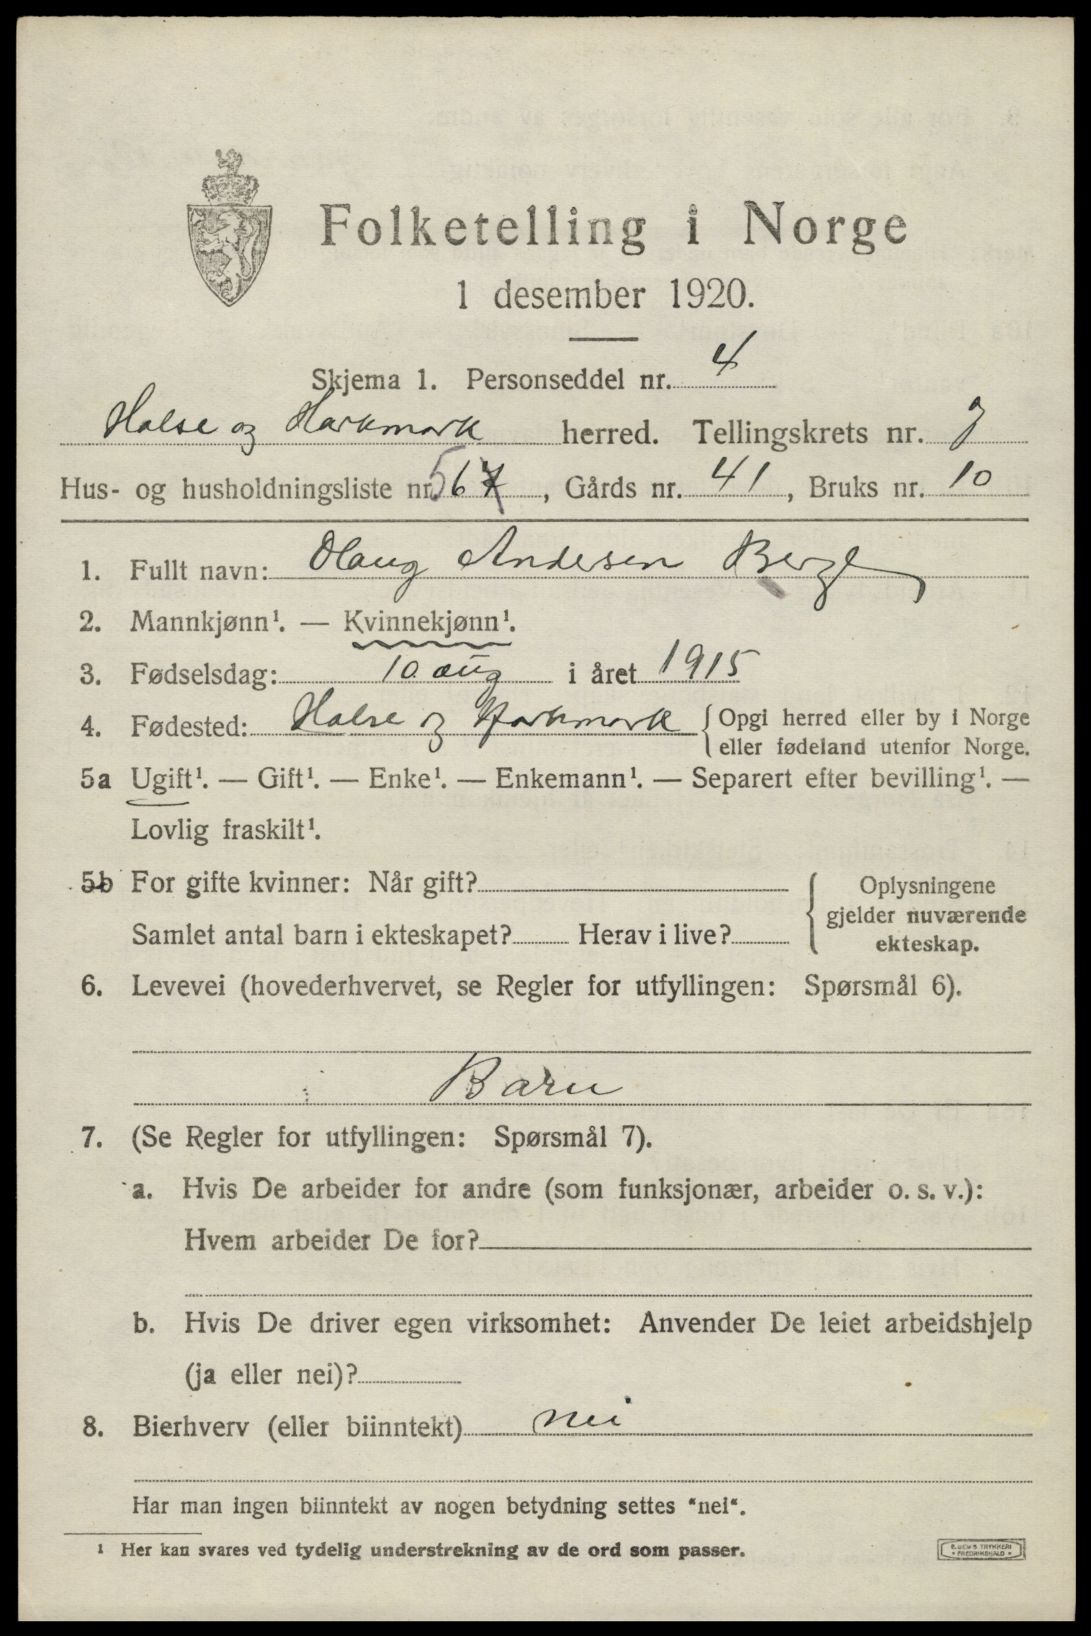 Folketelling i Norge
1 desember 1920.
Skjema 1. Personseddel nr. 4
Halse og Harkmark herred. Tellingskrets nr. 7
Hus- og husholdningsliste nr. 56, Gårds nr. 41, Bruks nr. 10
1. Fullt navn: Olaug Andersen Berge
2. Mannkjønn¹. — Kvinnekjønn¹.
3. Fødselsdag: 10 aug i året 1915
4. Fødested: Halse og Harkmark {Opgi herred eller by i Norge
eller fødeland utenfor Norge.
5a Ugift¹. — Gift¹. — Enke¹. — Enkemann¹. — Separert efter bevilling¹. —
Lovlig fraskilt¹.
5b For gifte kvinner: Når gift?
Samlet antal barn i ekteskapet? Herav i live?
{ Oplysningene
gjelder nuværende
ekteskap.
6. Levevei (hovederhvervet, se Regler for utfyllingen: Spørsmål 6).
Barn
7. (Se Regler for utfyllingen: Spørsmål 7).
a. Hvis De arbeider for andre (som funksjonær, arbeider o. s. v.):
Hvem arbeider De for?
b. Hvis De driver egen virksomhet: Anvender De leiet arbeidshjelp
(ja eller nei)?
8. Bierhverv (eller biinntekt) nei
Har man ingen biinntekt av nogen betydning settes "nei".
¹ Her kan svares ved tydelig understrekning av de ord som passer.